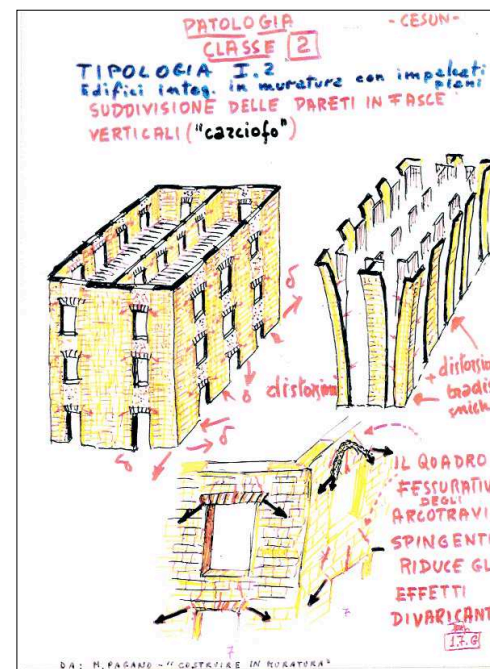 PATOLOGIA - CESUN-
CLASSE 2
TIPOLOGIA I.2
Edifici integ. in muratura con impalcati piani
SUDDIVISIONE DELLE PARETI IN FASCE
VERTICALI ("carciofo")
δ
δ
distorsioni
δ
δ
+ distorsio
bradisi
smich
IL QUADRO
FESSURATIV
DEGLI
ARCOTRAVI
SPINGENTI
RIDUCE GL
EFFETTI
DIVARICANT
7
7
I.7.G
DA: M. PAGANO - "COSTRUIRE IN MURATURA"